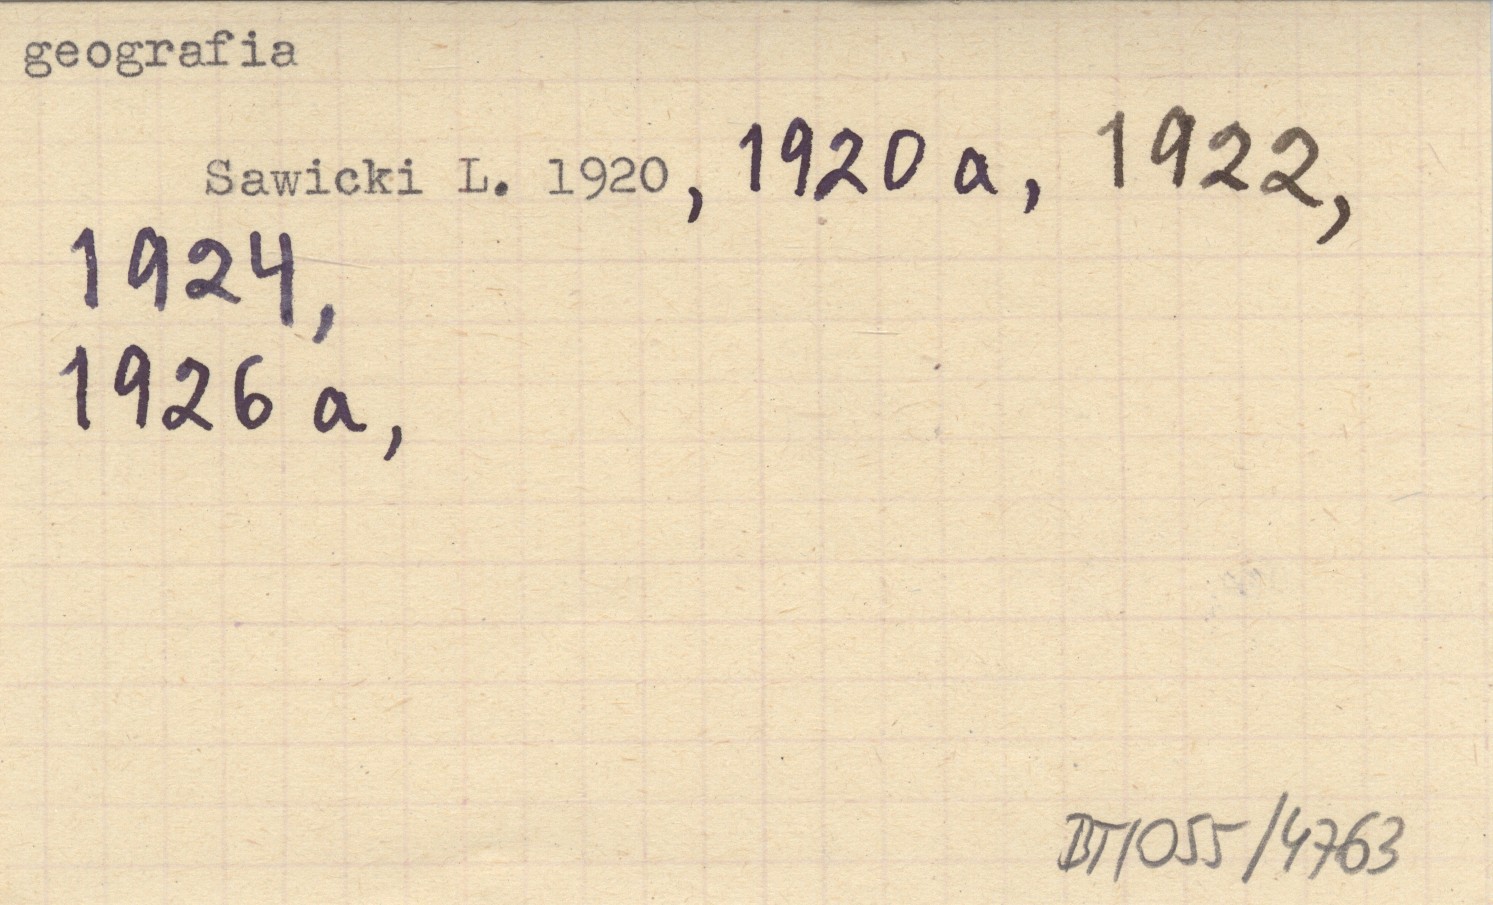 geografia
Sawicki L. 1920, 1920 a, 1922,
1924,
1926 a,
BT/055/4763